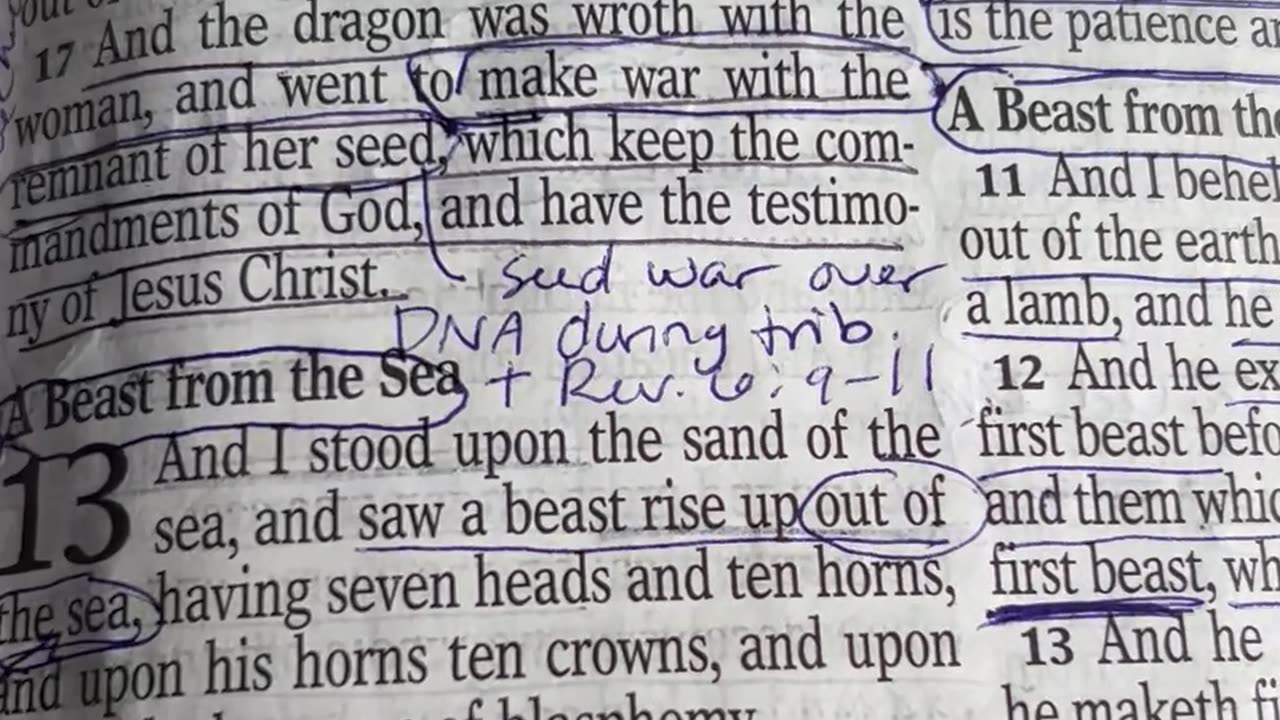 17 And the dragon was wroth with the
woman, and went to make war with the
remnant of her seed, which keep the com-
mandments of God, and have the testimo-
ny of Jesus Christ.
seed war over
DNA during trib.
+ Rev. 6:9-11
A Beast from the Sea
13 And I stood upon the sand of the
sea, and saw a beast rise up out of
the sea, having seven heads and ten horns,
and upon his horns ten crowns, and upon
of blasphemy
is the patience
A Beast from the
11 And I behel
out of the earth
a lamb, and he
12 And he ex
first beast befo
and them whic
first beast, wh
13 And he
he maketh fi